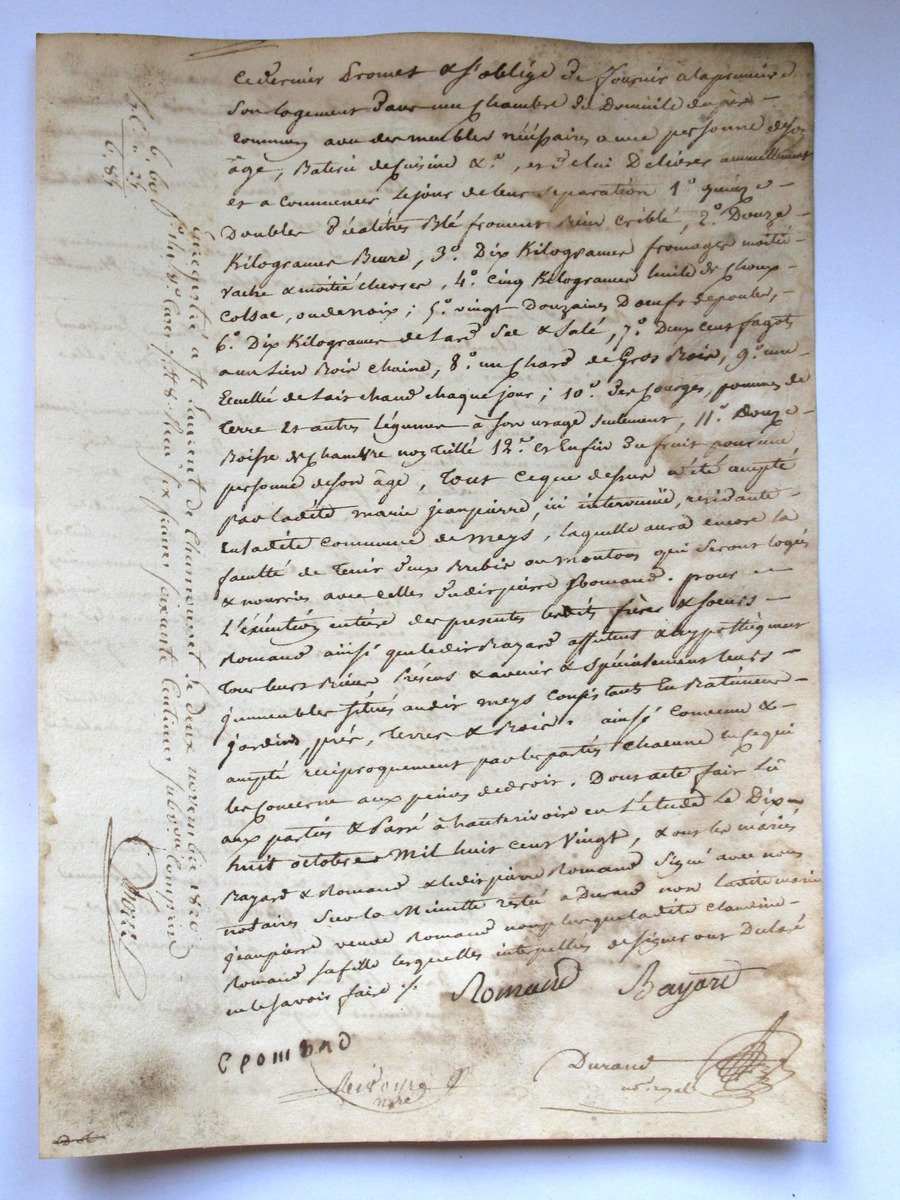 ce dernier Promet & s'oblige de fournir a la premiere
Son logement dans une Chambre du Domicile
commun avec des meubles nécessaires a une personne de son
âge, Baterie de Cuisine &a, et de lui Delivrer annuellement
et a commencer le jour de leur separation 1° quinze
Doubles Blé froment bien criblé, 2° Douze
Kilogrames Beurre, 3° Dix Kilogrames fromages moitié
vache & moitié chevres, 4° Cinq Kilogrames huile de Choux
Colsac, ou de noix; 5° vingt Douzaines D'oeufs de poules,
6° Dix Kilogrames de Lard Sec & Salé, 7° Deux cent fagots
a un Lien Bois Chaine, 8° un Chard de Gros Bois, 9° une
Ecuellée de Lait chaud chaque jour; 10° Des Courges, pommes de
Terre et autres Légumes à Son usage Seulement, 11° Douze
de Chambre non Teillé 12° et Enfin Du fruit pour une
personne de son âge, Tout ce que dessus a été accepté
par ladite marie jeanpierre, ici intervenüe, residante
en ladite Commune de meys, laquelle aura encore la
faculté de Tenir deux Brebis ou moutons qui Seront logés
& nourris avec celles dudit pierre Romand. pour
L'exécution entiere des presentes lesdits frères & soeurs
Romand ainsi que ledit Bayard affectent & hypothéquent
Tous leurs Biens Présens & avenir & spécialement leurs
jmmeubles situés audit meys consistants En Batimens
jardins, prés, Terres & Bois. ainsi Convenu &
accepté reciproquement par les parties Chacune en ce qui
les concerne aux peines de droit. Dont acte fait Lü
aux parties & Passé à hauterivoire en L'étude Le Dix
huit octobre Mil huit cent Vingt, & ont les mariés
Bayard & Romand & ledit pierre Romand Signé avec nous
notaires Sur la Minutte restée a Durand non ladite marie
jeanpierre veuve Romand non plus que ladite Claudine
Romand sa fille lesquelles interpellées de signer ont Declaré
ne le savoir faire ./.
Romand Bayard
C Romand
Durand
no.re royal
nore
Enregistré à St Laurent de Chamousset le deux novembre 1820
f° Reçu six francs soixante centimes subv.on comprise
6, 60